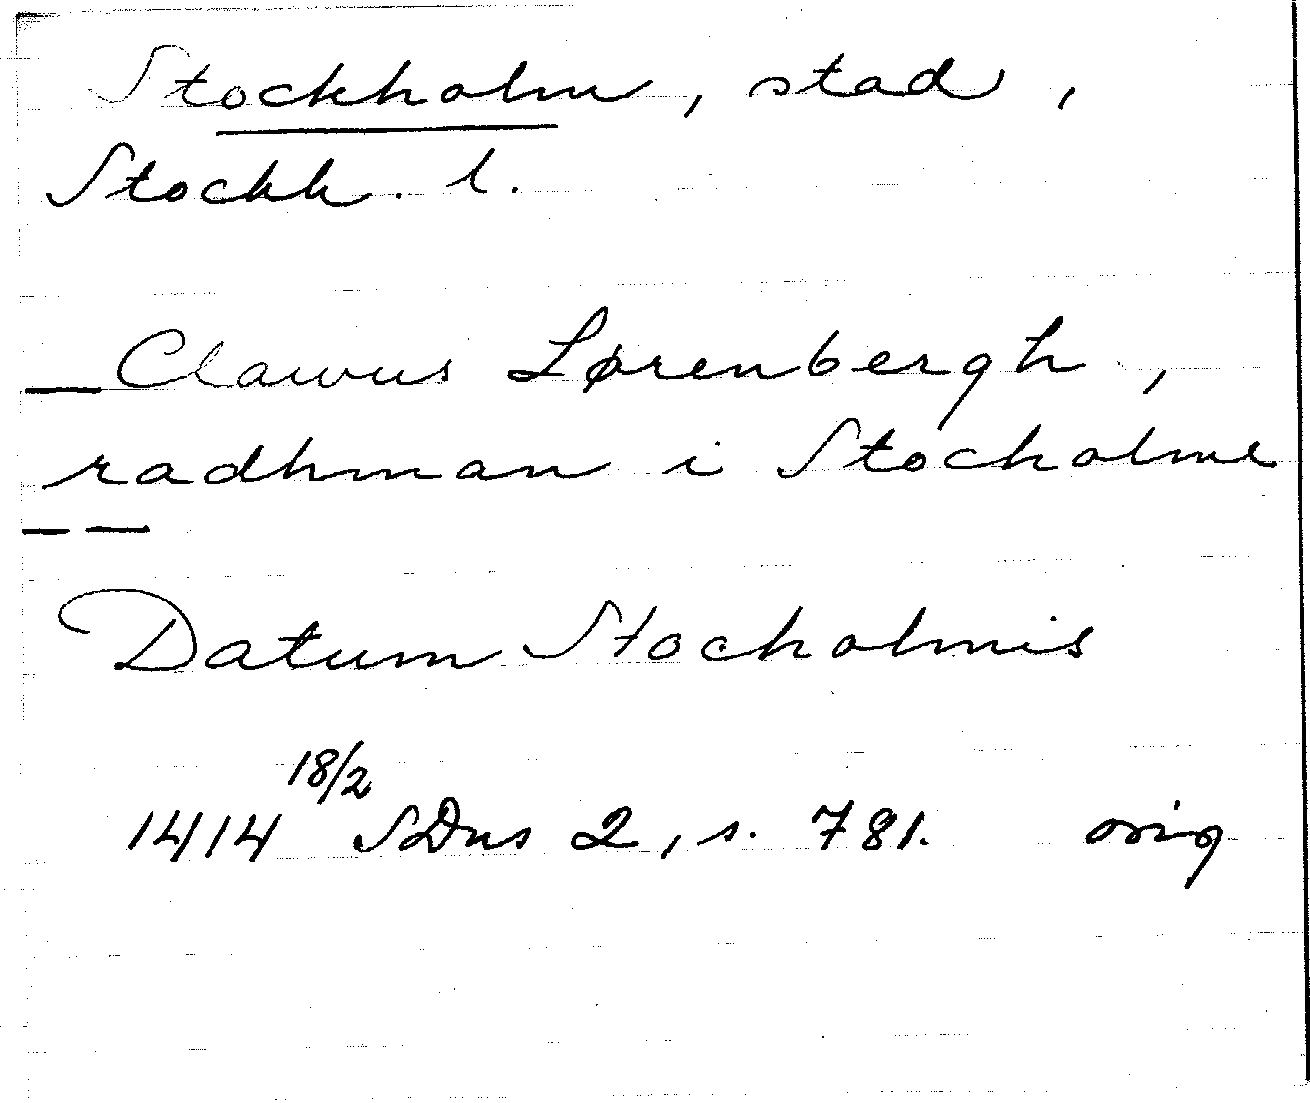 Stockholm, stad,
Stockh. l.
— Clawus Lørenbergh,
radhman i Stocholme
— —
Datum Stocholmis
1414 18/2 SDns 2, s. 781. orig